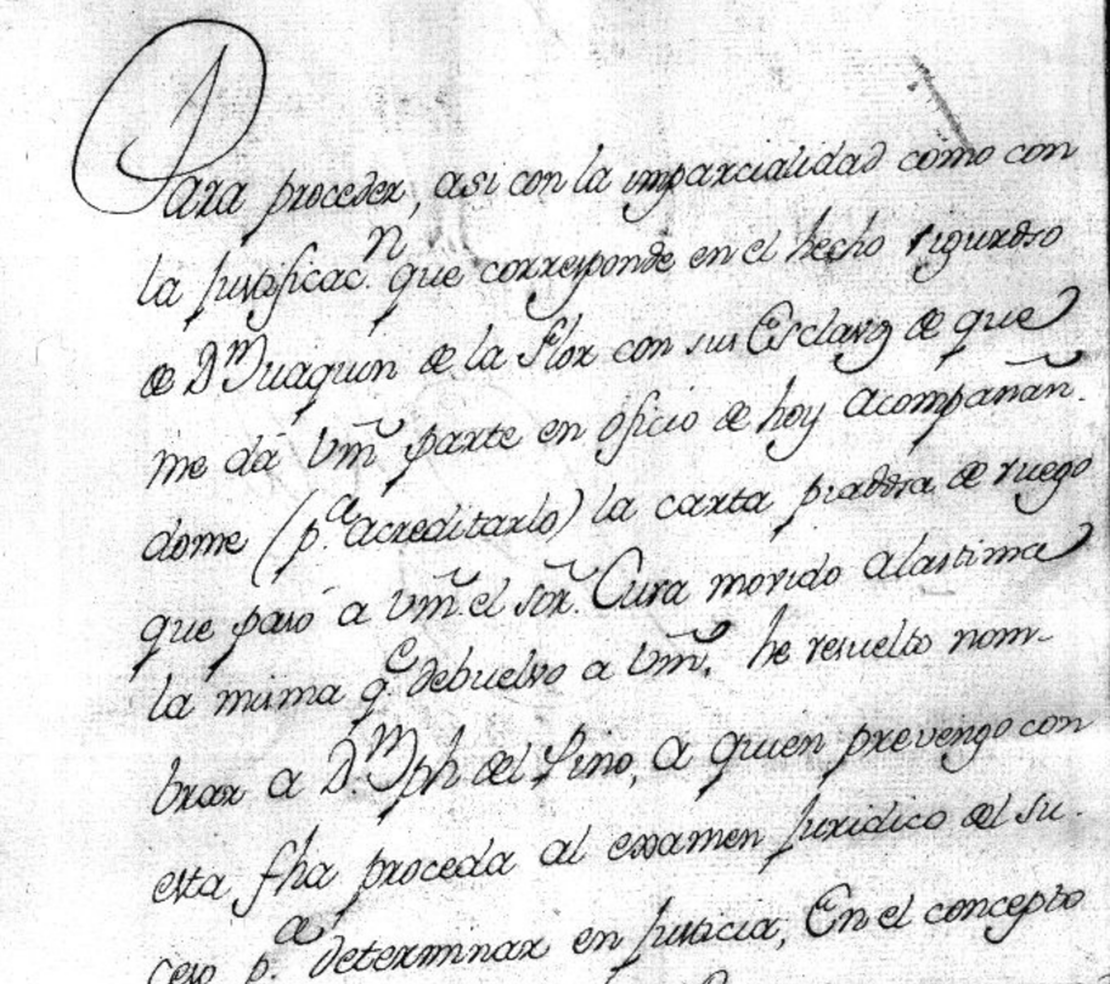 Para proceder, asi con la imparcialidad como con
la justificac.n que corresponde en el hecho riguroso
de D.n Juaquin de la Flor con sus Esclavos de que
me dá Vm̃ parte en oficio de hoy acompañan̄-
dome (p.a acreditarlo) la carta piadosa de ruego
que pasó a Vm̃. el Sõr. Cura movido a lastima
la misma q.e debuelvo a Vm̃. he resuelto nom-
brar a D.n Jph del Pino, a quien prevengo con
esta fha proceda al examen juridico del su-
ceso p.a determinar en justicia, En el concepto